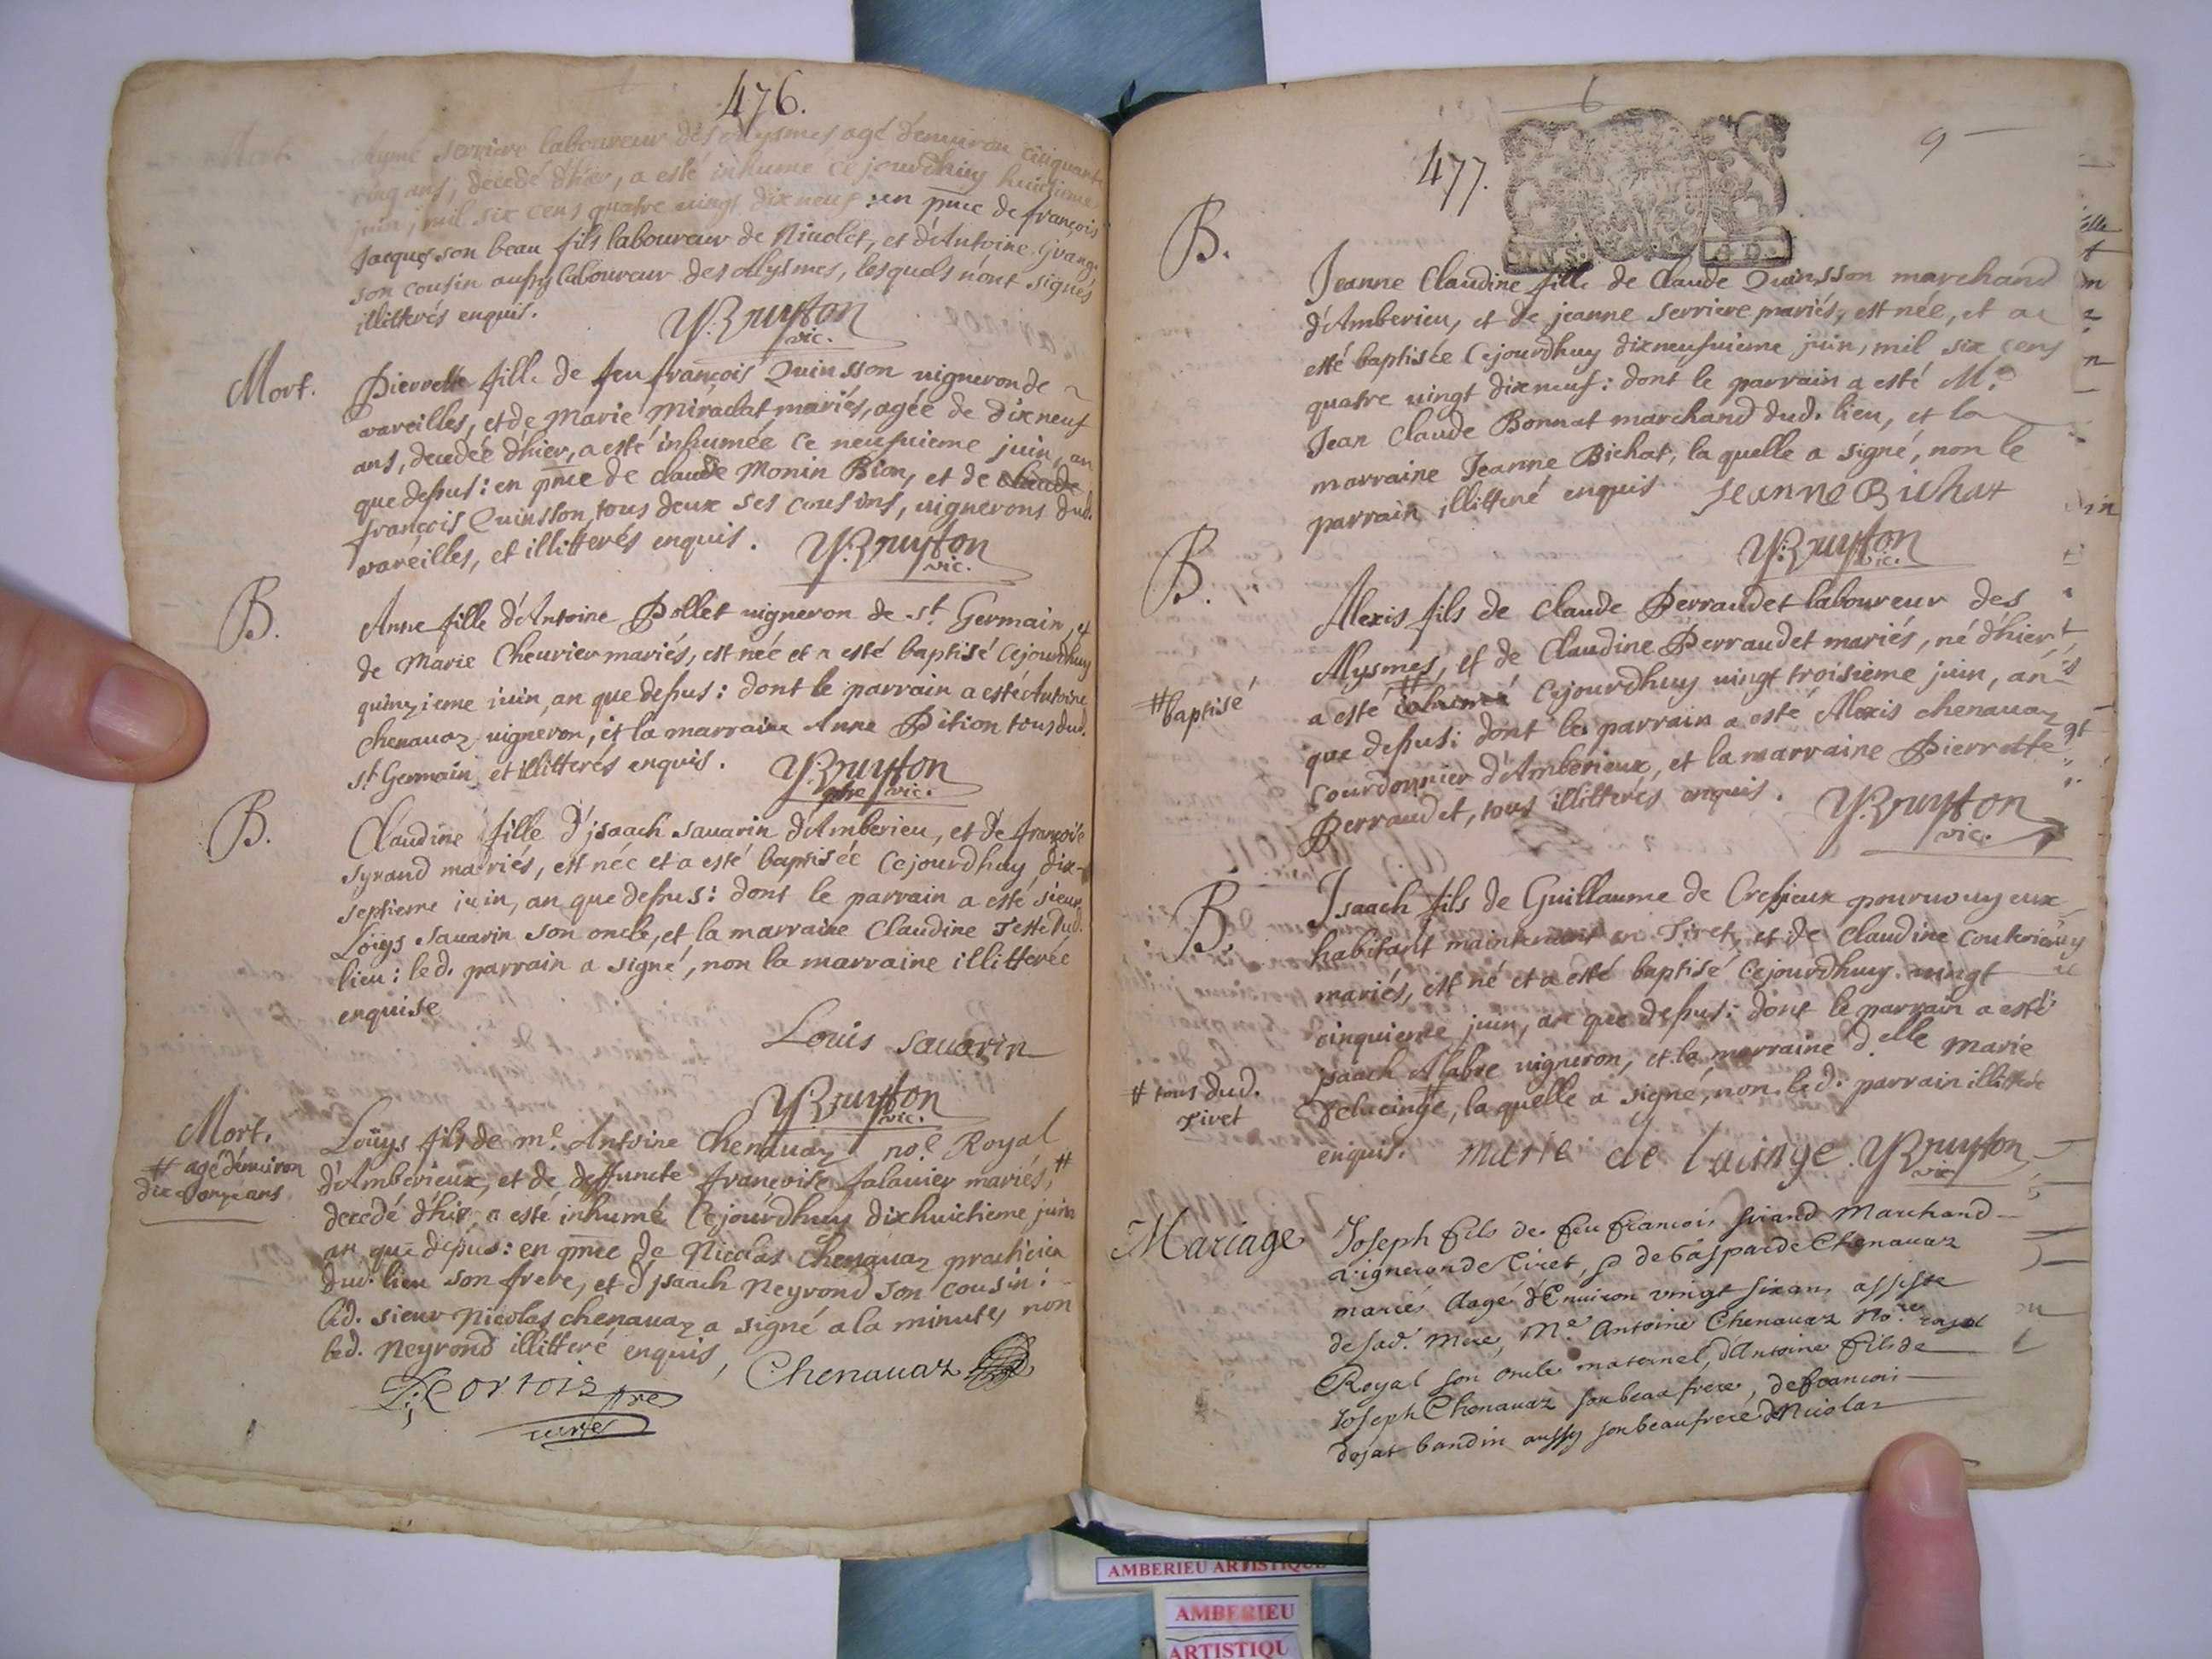 476.
Mort. Aymé serriere laboureur des allysmes, agé d'enuiron cinquante
cinq ans, decedé d'hier, a esté inhumé ce jourdhuy huictieme
juin, mil six cens quatre uingt dix neuf: en pnce de françois
Jacques son beau fils laboureur de Niuolet, et d'Antoine Grang
son cousin aussy laboureur des allysmes, lesquels n'ont signés
illitterés enquis.
Y. Bruyston
vic.
Mort. Pierrette fille de feu françois Quinsson uigneron de
vareilles, et de Marie Miradat mariés, agée de dix neuf
ans, decedée d'hier, a esté inhumée ce neufuieme juin, an
que dessus: en pnce de claude Monin Bion, et de claude
françois Quinsson, tous deux ses cousins, uignerons dud.
vareilles, et illitterés enquis. Y. Bruyston
vic.
B. Anne fille d'Antoine Pollet uigneron de st Germain, et
de Marie Cheurier mariés, est née et a esté baptisé Cejourdhuy
quinzieme juin, an que dessus: dont le parrain a esté Antoine
chenauaz uigneron, et la marraine Anne Pition tous dud.
st Germain, et illitterés enquis. Y. Bruyston
ptre vic.
B. Claudine fille d'jsaach sauarin d'Amberieu, et de françoise
syrand mariés, est née et a esté baptisée Cejourdhuy dix-
septieme juin, an que dessus: dont le parrain a esté sieur
Loüys sauarin son oncle, et la marraine Claudine Teste dud.
lieu: led. parrain a signé, non la marraine illitterée
enquise
Louis sauarin
Y. Bruyston
vic.
Mort. Loüys fils de me. Antoine Chenauaz noe. Royal
# agé d'enuiron
dix ans
d'Amberieux, et de deffuncte françoise falauier mariés, #
decedé d'hier, a esté inhumé Cejourdhuy dixhuictieme juin
an que dessus: en pnce de Nicolas Chenauaz practicien
dud. lieu son frere, et d'jsaach Neyrond son cousin:
led. sieur Nicolas chenauaz a signé a la minute, non
led. Neyrond illitteré enquis, Chenauaz
ptre
curé
6
9
477.
B. Jeanne Claudine fille de Claude Quinsson marchand
d'Amberieu, et de jeanne serriere mariés, est née, et a
esté baptisée Cejourdhuy dixneufuieme juin, mil six cens
quatre uingt dixneuf: dont le parrain a esté Mr.
Jean Claude Bonnat marchand dud. lieu, et la
marraine Jeanne Bichat, la quelle a signé, non le
parrain illitteré enquis Jeanne Bichat
Y. Bruyston
vic.
B. Alexis fils de Claude Perraudet laboureur des
Alysmes, et de Claudine Perraudet mariés, né d'hier,
# baptisé
a esté inhumé # Cejourdhuy uingt troisieme juin, an
que dessus: dont le parrain a esté Alexis chenauaz
courdonnier d'Amberieux, et la marraine Pierrette
Perraudet, tous illitterés enquis. Y. Bruyston
vic.
B. Isaach fils de Guillaume de Cressieux pouruouyeux
habitant maintenant en Tiret, et de Claudine
mariés, est né et a esté baptisé Cejourdhuy uingt
cinquieme juin, an que dessus: dont le parrain a esté
jsaach Alabre uigneron, et la marraine delle Marie
# tous dud.
Tiret
Delucinge, # la quelle a signé, non led. parrain illitteré
enquis. marie de lucinge. Y. Bruyston
vic
Mariage Joseph fils de feu francois sirand Marchand
uigneron de Tiret, & de Gasparde Chenauaz
mariés Aagé d'Enuiron vingt six ans assisté
de sad. Mere, Me. Antoine Chenauaz Nore.
Royal son oncle maternel, d'Antoine fils de
Joseph Chenauaz son beau frere, de francois
dojat bandin aussy son beaufrere de Nicolas
AMBERIEU ARTISTIQUE
AMBERIEU
ARTISTIQU